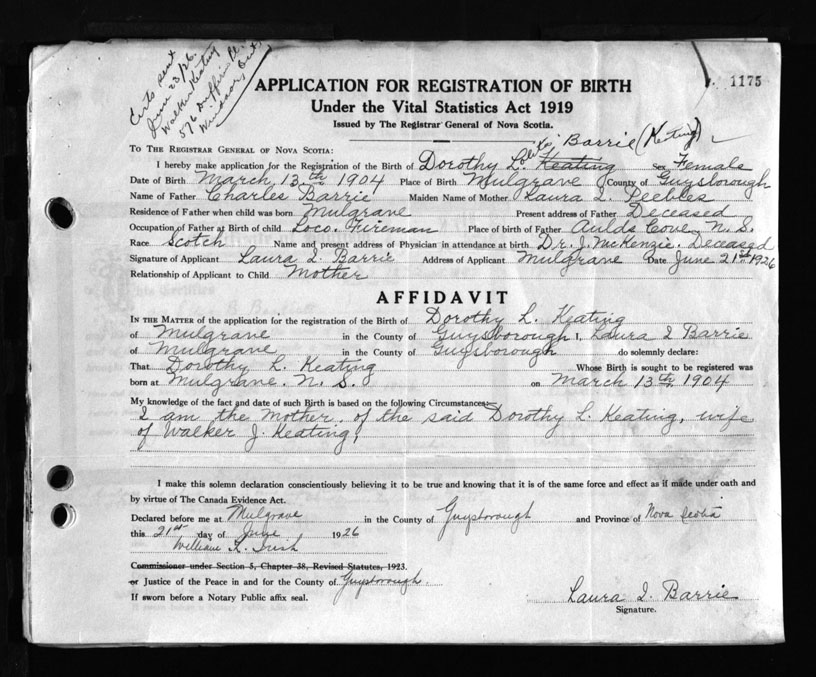 Certs sent
June 23/26.
Walker Keating
576 Dufferin Pl.
Windsor, Ont.
1175
APPLICATION FOR REGISTRATION OF BIRTH
Under the Vital Statistics Act 1919
Issued by The Registrar General of Nova Scotia.
TO THE REGISTRAR GENERAL OF NOVA SCOTIA:
Barrie (Keating)
I hereby make application for the Registration of the Birth of Dorothy L. Keating Sex Female
Date of Birth March 13th 1904 Place of Birth Mulgrave County of Guysborough
Name of Father Charles Barrie Maiden Name of Mother Laura I. Peebles
Residence of Father when child was born Mulgrave Present address of Father Deceased
Occupation of Father at Birth of child Loco. Fireman Place of birth of Father Aulds Cove N. S.
Race Scotch Name and present address of Physician in attendance at birth Dr. J. McKenzie. Deceased
Signature of Applicant Laura I. Barrie Address of Applicant Mulgrave Date June 21st 1926
Relationship of Applicant to Child Mother
AFFIDAVIT
IN THE MATTER of the application for the registration of the Birth of Dorothy L. Keating
of Mulgrave in the County of Guysborough I, Laura I Barrie
of Mulgrave in the County of Guysborough do solemnly declare:
That Dorothy L. Keating Whose Birth is sought to be registered was
born at Mulgrave. N. S. on March 13th 1904
My knowledge of the fact and date of such Birth is based on the following Circumstances:
I am the Mother of the said Dorothy L. Keating, wife
of Walker J. Keating,
I make this solemn declaration conscientiously believing it to be true and knowing that it is of the same force and effect as if made under oath and
by virtue of The Canada Evidence Act.
Declared before me at Mulgrave in the County of Guysborough and Province of Nova Scotia
this 21st day of June 1926
William R. Irish
Commissioner under Section 5, Chapter 38, Revised Statutes, 1923.
or Justice of the Peace in and for the County of Guysborough.
If sworn before a Notary Public affix seal.
Laura I. Barrie
Signature.